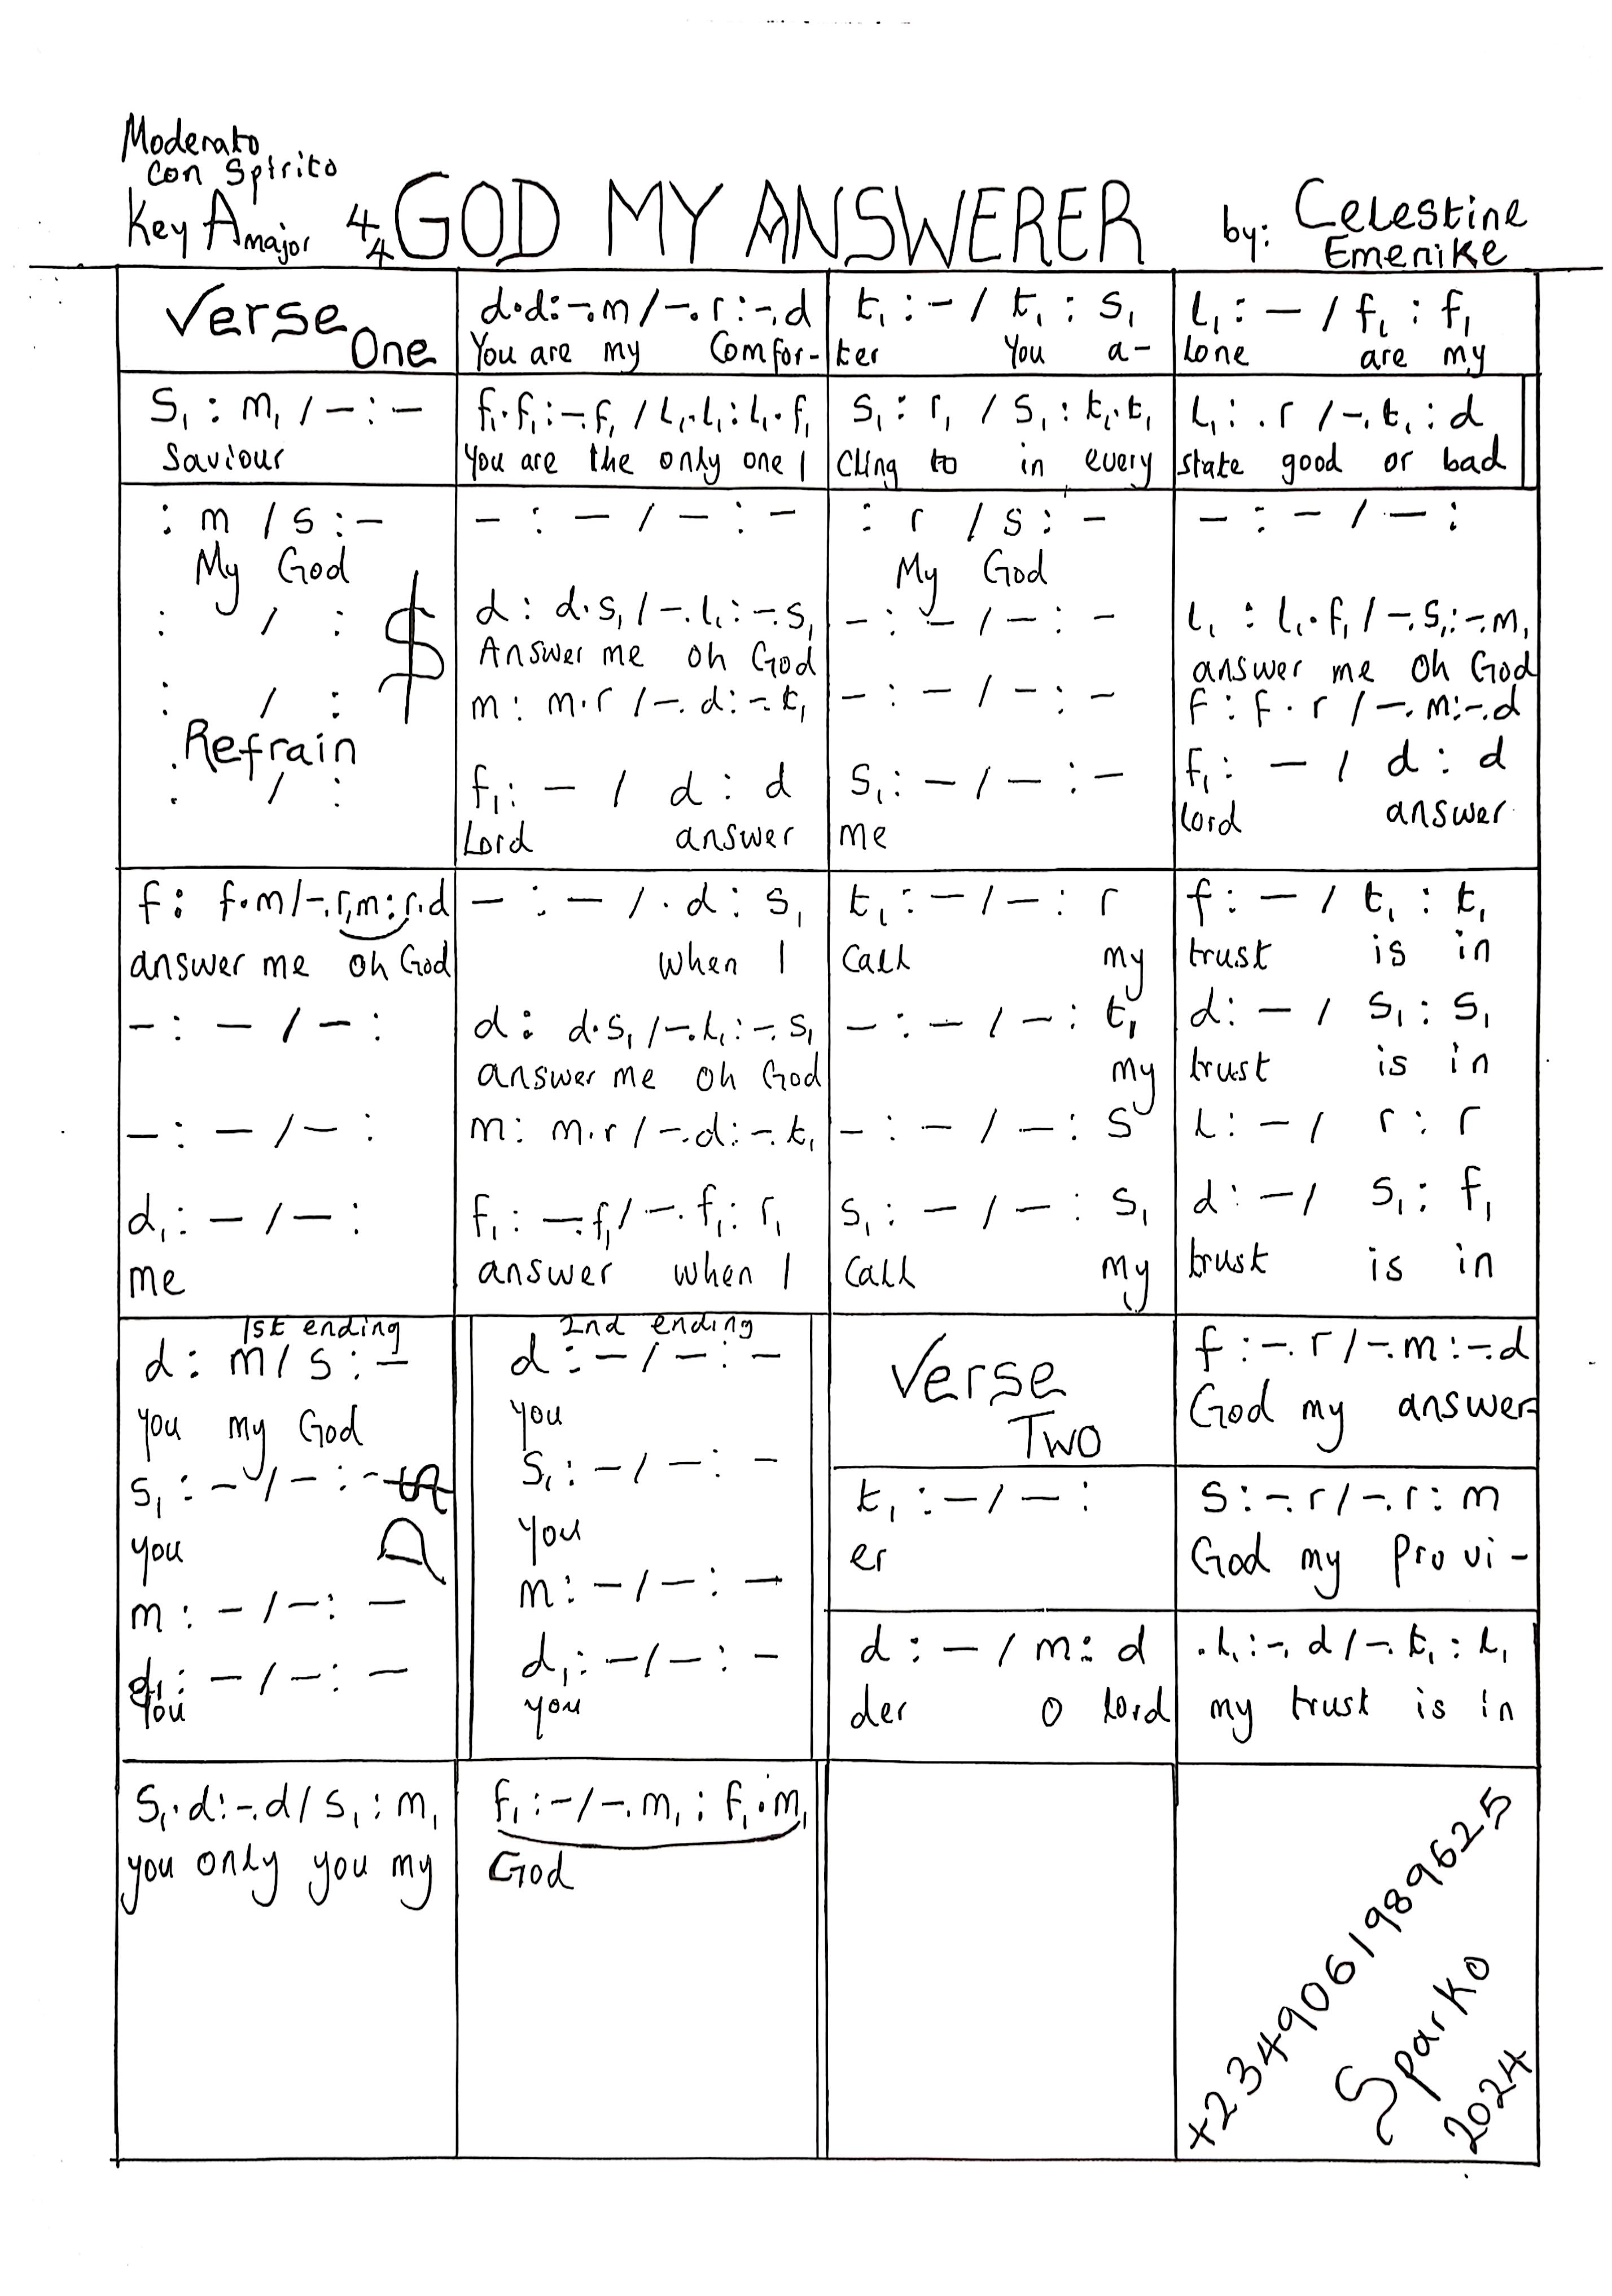 Moderato
Con Spirito
Key A major 4/4 GOD MY ANSWERER by: Celestine
Emenike
Verse One
d.d:-.m/-.r:-.d
You are my Comfor-
t₁:-/t₁:s₁
ter You a-
l₁:-/f₁:f₁
lone are my
s₁:m₁/-:-
Saviour
f₁.f₁:-.f₁/l₁.l₁:l₁.f₁
You are the only one I
s₁:r₁/s₁:t₁.t₁
Cling to in every
l₁:.r/-.t₁:d
state good or bad
:m/s:-
My God
: / :
: / :
Refrain
: / :
-:-/-:-
d:d.s₁/-.l₁:-.s₁
Answer me oh God
m:m.r/-.d:-.t₁
f₁:-/d:d
Lord answer
:r/s:-
My God
-:-/-:-
-:-/-:-
s₁:-/-:-
me
-:-/-:
l₁:l₁.f₁/-.s₁:-.m₁
answer me oh God
f:f.r/-.m:-.d
f₁:-/d:d
lord answer
f:f.m/-.r,m:r.d
answer me oh God
-:-/-:
-:-/-:
d₁:-/-:
me
-:-/.d:s₁
when I
d:d.s₁/-.l₁:-.s₁
answer me oh God
m:m.r/-.d:-.t₁
f₁:-.f₁/-.f₁:r₁
answer when I
t₁:-/-:r
Call my
-:-/-:t₁
my
-:-/-:s
s₁:-/-:s₁
Call my
f:-/t₁:t₁
trust is in
d:-/s₁:s₁
trust is in
l:-/r:r
d:-/s₁:f₁
trust is in
1st ending
d:m/s:-
you my God
s₁:-/-:-
you
m:-/-:-
d₁:-/-:-
You
2nd ending
d:-/-:-
you
s₁:-/-:-
you
m:-/-:-
d₁:-/-:-
you
Verse
Two
f:-.r/-.m:-.d
God my answer-
t₁:-/-:
er
s:-.r/-.r:m
God my provi-
d:-/m:d
der O lord
.l₁:-.d/-.t₁:l₁
my trust is in
s₁.d:-.d/s₁:m₁
you only you my
f₁:-/-.m₁:f₁.m₁
God
+2349061989625
Sparko
2024